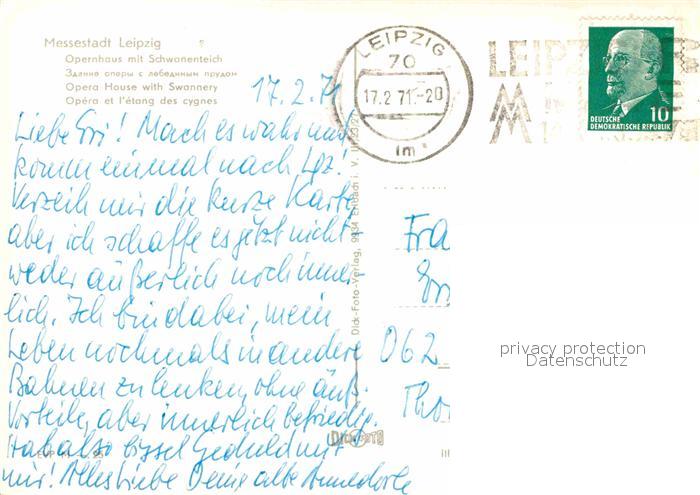 Messestadt Leipzig
Opernhaus mit Schwanenteich
Здание оперы с лебединым прудом
Opera House with Swannery
Opéra et l'étang des cygnes
17.2.71
Liebe Eri! Mach es wahr und
komm einmal nach Lpz!
Verzeih mir die kurze Karte,
aber ich schaffe es jetzt nicht
weder äußerlich noch inner-
lich. Ich bin dabei, mein
Leben nochmals in andere
Bahnen zu lenken, ohne äuß.
Vorteile, aber innerlich befriedig.
Hab also bissel Geduld mit
mir! Alles Liebe Deine alte Annedore
LEIPZIG
70
17.2.71.-20
LEIPZ
MM
DEUTSCHE
DEMOKRATISCHE REPUBLIK
10
Dick-Foto-Verlag, 9934 Erlbach i. V.
Fra
062
Tho
privacy protection
Datenschutz